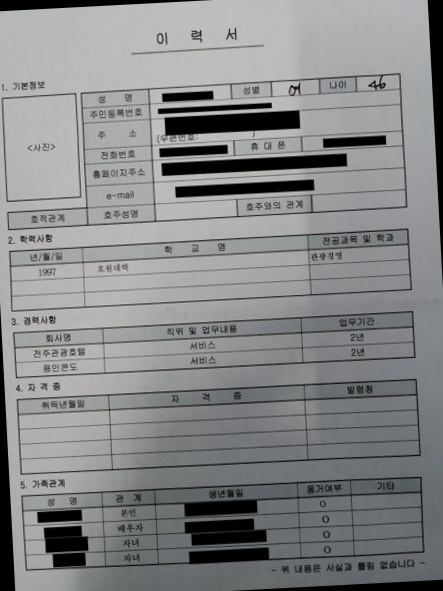 이 력 서
1. 기본정보
<사진>
성 명 성별 여 나이 46
주민등록번호
주 소 (우편번호: )
전화번호 휴 대 폰
홈페이지주소
e-mail
호적관계 호주성명 호주와의 관계
2. 학력사항
년/월/일 학 교 명 전공과목 및 학과
1997 호원대학 관광경영
3. 경력사항
회사명 직위 및 업무내용 업무기간
전주관광호텔 서비스 2년
용인콘도 서비스 2년
4. 자 격 증
취득년월일 자 격 증 발령청
5. 가족관계
성 명 관 계 생년월일 동거여부 기타
본인 O
배우자 O
자녀 O
자녀 O
- 위 내용은 사실과 틀림 없습니다 -